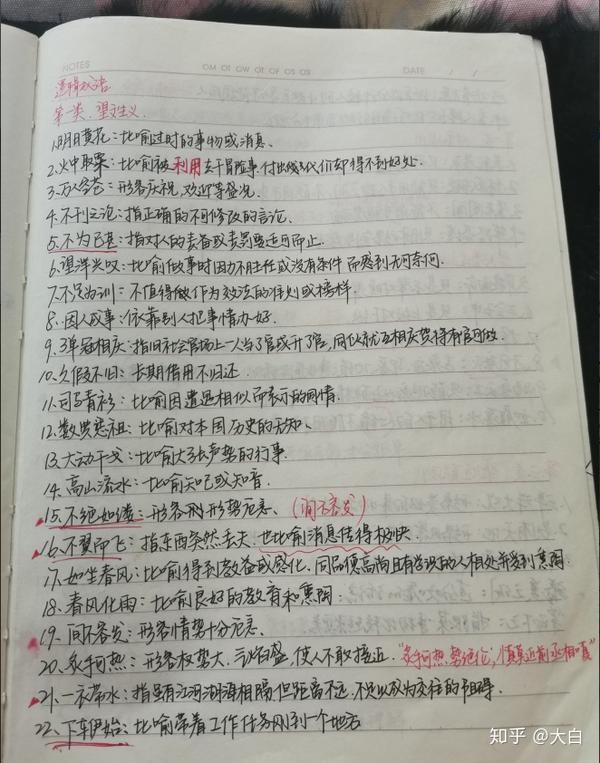 NOTES
DATE / /
逻辑成语
第一类、望文生义.
1.明日黄花:比喻过时的事物或消息.
2.火中取栗:比喻被利用去干冒险事,付出代价却得不到好处.
3.万人空巷:形容庆祝,欢迎等盛况.
4.不刊之论:指正确的不可修改的言论.
5.不为已甚:指对人的责备或责罚要适可而止.
6.望洋兴叹:比喻做事时因力不胜任或没有条件而感到无可奈何.
7.不足为训:不值得做作为效法的准则或榜样.
8.因人成事:依靠别人把事情办好.
9.弹冠相庆:指旧社会官场上一人当了官或升了官,同伙就互相庆贺将有官可做.
10.久假不归:长期借用不归还.
11.司马青衫:比喻因遭遇相似而表示的同情.
12.数典忘祖:比喻对本国历史的无知.
13.大动干戈:比喻大张声势的行事.
14.高山流水:比喻知己或知音.
15.不绝如缕:形容 形势危急.(间不容发)
16.不翼而飞:指东西突然丢失.也比喻消息传得极快
17.如坐春风:比喻得到教益或感化.同品德高尚且有学识的人相处并受到熏陶.
18.春风化雨:比喻良好的教育和熏陶.
19.间不容发:形容情势十分危急.
20.炙手可热:形容权势大、气焰盛,使人不敢接近."炙手可热势绝伦,慎莫近前丞相嗔"
21.一衣带水:指虽有江河湖海相隔但距离不远,不足以成为交往的阻碍.
22.下车伊始:比喻带着工作任务刚到一个地方
知乎 @大白